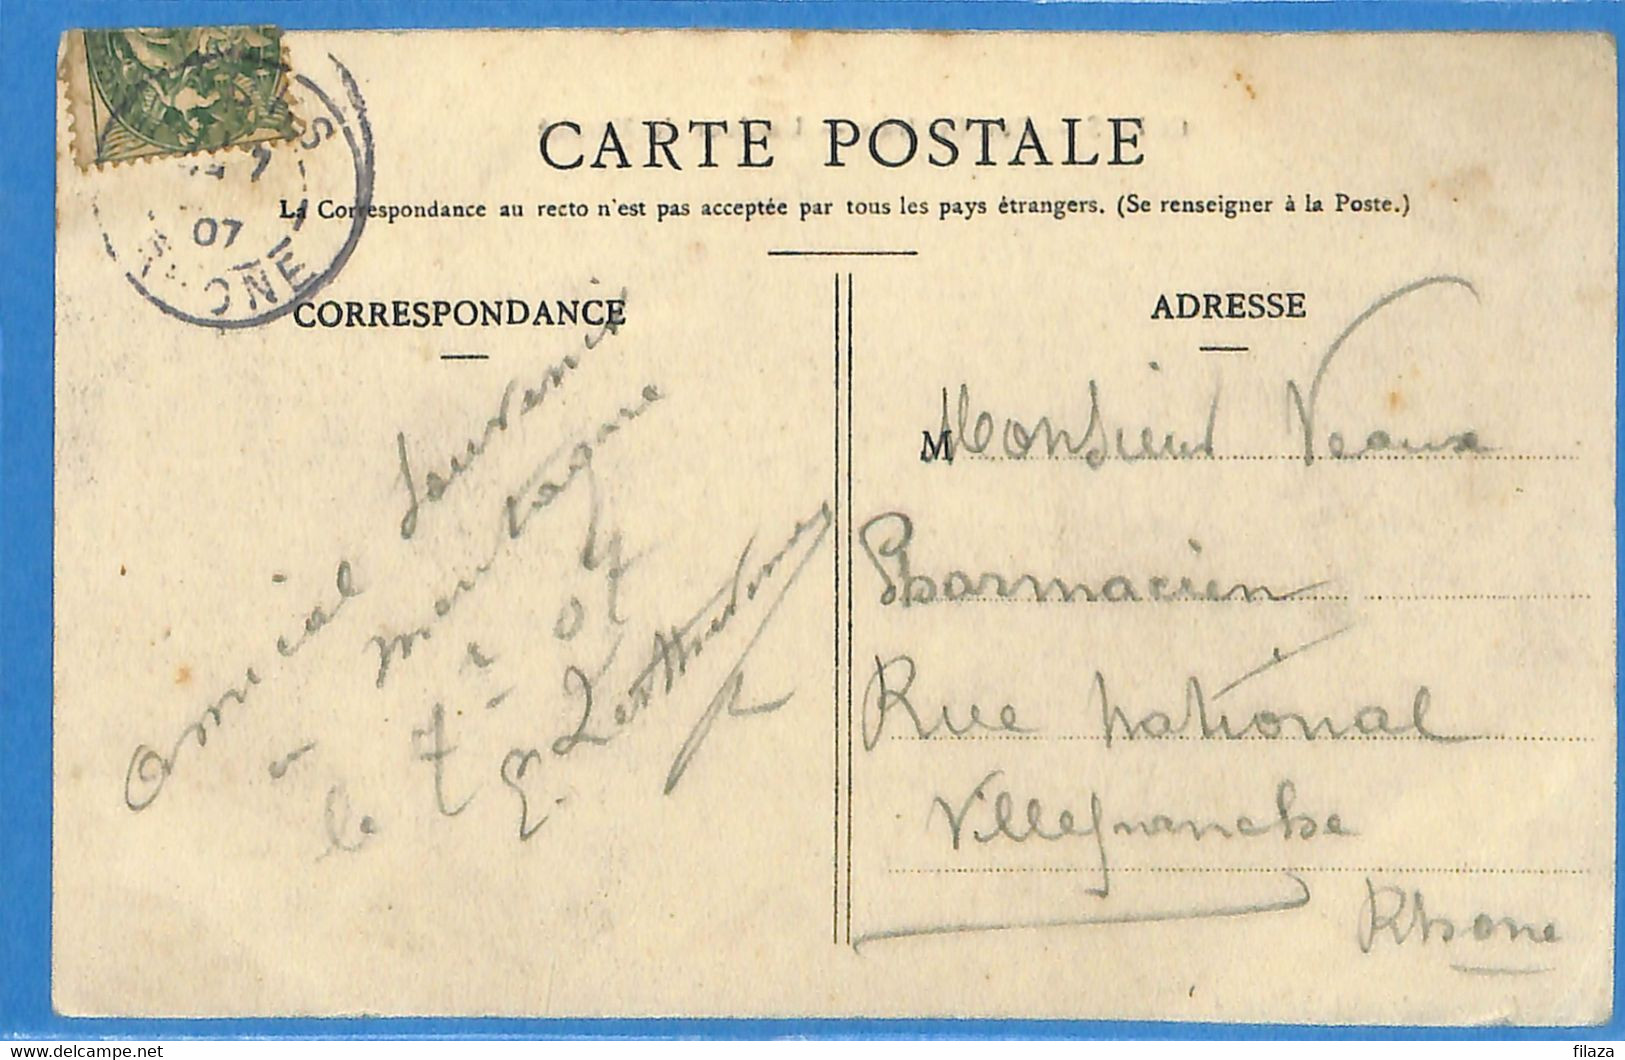 CARTE POSTALE
La Correspondance au recto n'est pas acceptée par tous les pays étrangers. (Se renseigner à la Poste.)
07
CORRESPONDANCE
amical souvenir
montagne
le 7 07
ADRESSE
M Monsieur Veaux
Pharmacien
Rue National
Villefranche
Rhone
filaza